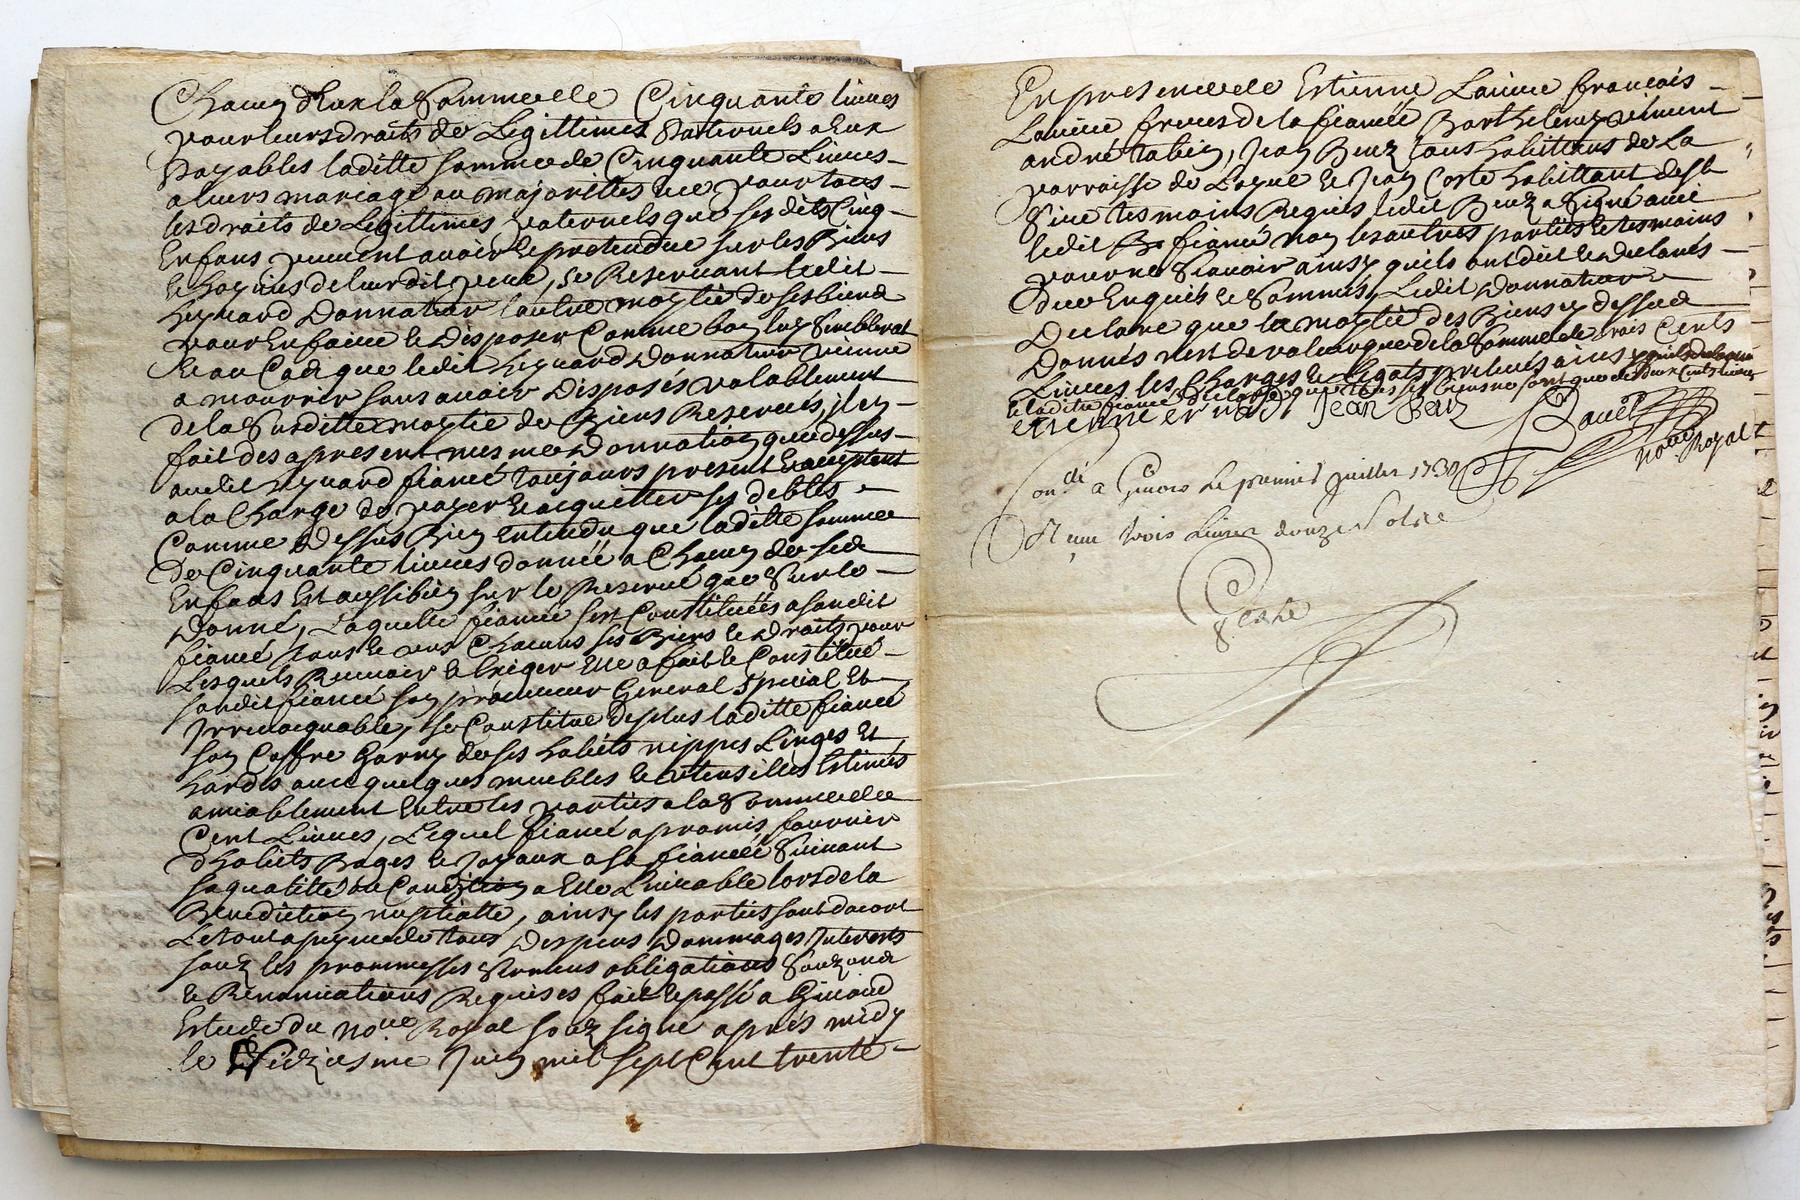 Chacun d'Eux la Somme de Cinquante livres
pour leurs droits de Legittimes paternels a Eux
payables laditte somme de Cinquante Livres
a leurs mariage ou majorittes et ce pour tous
les droits de Legittimes paternels que ses dits Cinq
Enfans peuvent avoir et pretendre sur les Biens
et hoyries de leur dit pere, se Reservant ledit
heyrard Donnateur l'autre moytié de ses biens
pour En faire et Disposer Comme bon luy Semblerat
Et au Cas que ledit heyrard Donnateur vienne
a mourrir sans avoir Disposés valablement
de la Susditte moytié de Biens Reservés, il en
fait des apresent mesme Donnation que dessus
audit heyrard fiancé toujours present Et acceptant
a la Charge de payer Et acquitter ses debtes
Comme Dessus Bien Entendu que laditte somme
de Cinquante livres donnée a Chacun de ses
Enfans Est aussi bien sur le Reservé que Sur le
Donné, Laquelle fiancée s'est Constituées a son dit
fiancé tous et uns Chacuns ses Biens et Droits pour
Lesquels Recevoir et Exiger Elle a fait et Constitué
son dit fiancé son procureur General Special Et
Irrevocquable, se Constitue de plus laditte fiancée
son Coffre Garny de ses habits nippes Linges Et
hardes avec quelques meubles et utensilles Estimés
amiablement Entre les parties a la Somme de
Cent Livres, Lequel fiancé a promis fournir
d'habits Bages et Joyaux a sa fiancée Suivant
sa qualitté ou Condition a Elle Livrable lors de la
Benediction nuptialle, ainsy les parties sont d'acort
Le tout a peyne de tous Despens Dommages Interests
sous les prommesses Serments obligations
et Renonciations Requises fait et passé a
Estude du no.re Royal souz signé après midy
le Juin mil sept Cent trente
En presence de Estienne François
freres de la fiancée Barthelemy
andré Jean Benz tous habittans de La
parroisse de et Jean Coste habittant de
tesmoins Requis ledit Benz a Signé avec
ledit fiancé non les autres parties et tesmoins
pour ne Sçavoir ainsy qu'ils ont dit et declarés
de ce Enquis et Sommés, Ledit Donnateur
Declare que la moytié des Biens cy dessus
Donnés n'est de valeur que de la Somme de trois Cents
Livres les Charges et Legats prelevés ainsy
et laditte fiancée Declare que tous ses biens ne sont que de Deux Cents livres
etienne Jean Benz
no.re Royal
Con.lé a le premier juillet 173
trois Livres douze Sols